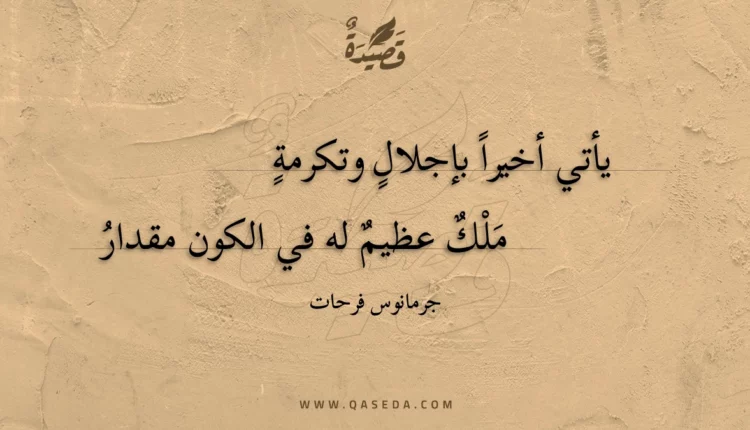 قَصِيْدَةٌ
يأتي أخيراً بإجلالٍ وتكرمةٍ
مَلْكٌ عظيمٌ له في الكون مقدارُ
جرمانوس فرحات
WWW.QASEDA.COM